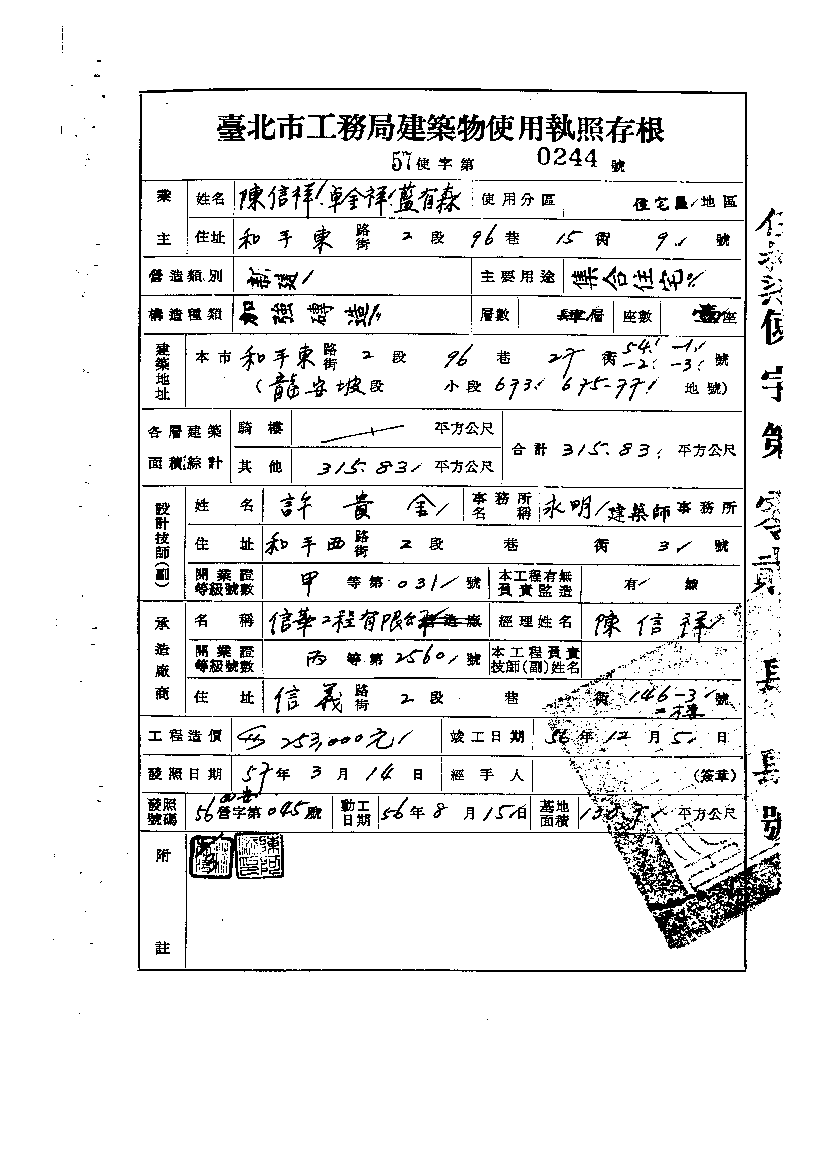 臺北市工務局建築物使用執照存根
57使字第 0244 號
業主 姓名 陳信祥 卓金祥 藍有森 使用分區 住宅區地區
住址 和平東路街 2 段 96 巷 15 衖 9 號
營造類別 新建 主要用途 集合住宅
構造種類 加強磚造 層數 層 座數 座
建築地址 本市 和平東路街 2 段 96 巷 27 衖 54. -1. -2. -3. 號
(龍安坡段 小段 673. 675-77. 地號)
各層建築面積綜計 騎樓 平方公尺 合計 315.83 平方公尺
其他 315.83 平方公尺
設計技師(副) 姓名 許貴金 事務所名稱 永明建築師事務所
住址 和平西路街 2 段 巷 衖 3 號
開業證等級號數 甲等第 031 號 本工程有無負責監造 有 無
承造廠商 名稱 信華工程有限公司營造廠 經理姓名 陳信祥
開業證等級號數 丙等第 2560 號 本工程負責技師(副)姓名
住址 信義路街 2 段 巷 衖 146-3 號
二樓
工程造價 253,000元 竣工日期 56 年 12 月 5 日
發照日期 57 年 3 月 14 日 經手人 (簽章)
發照號碼 56營字第045號 動工日期 56 年 8 月 15 日 基地面積 平方公尺
附註
使字第零貳 號